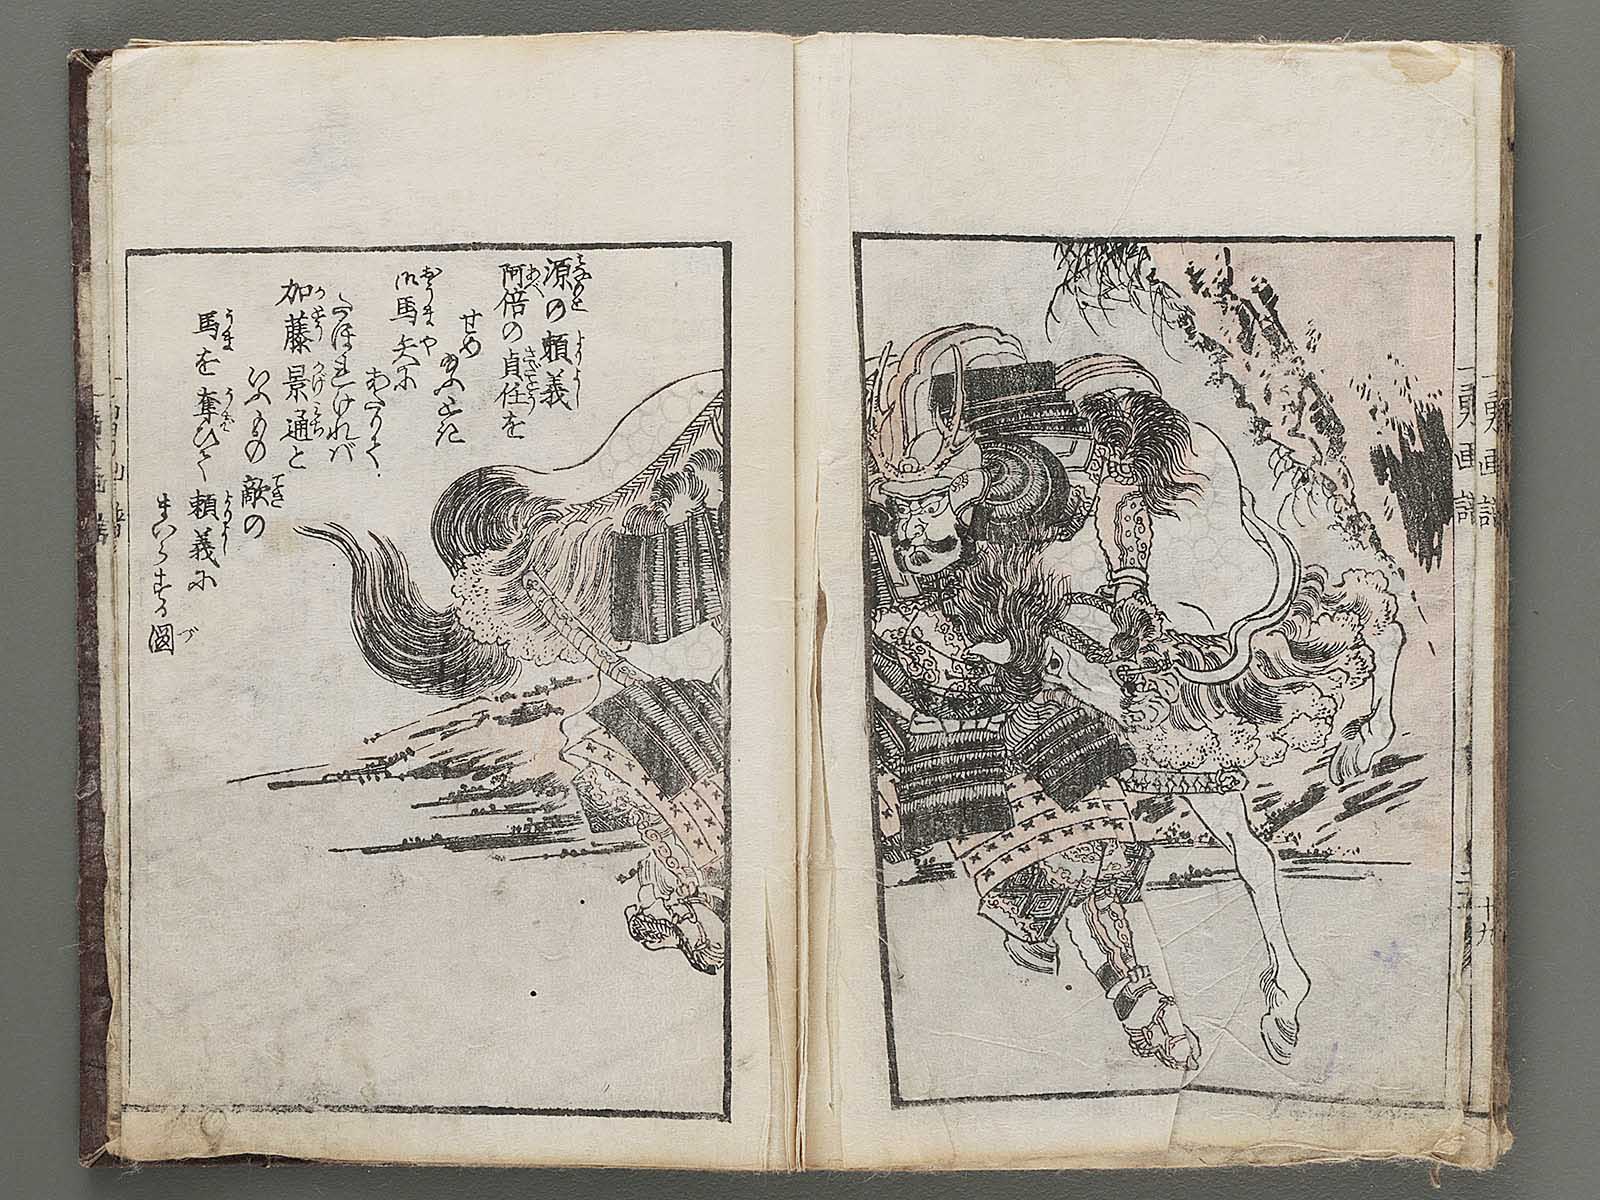 一勇画譜
十九
源の頼義
阿倍の貞任を
せめ給ふとき
御馬矢に
あたりて
たほれけれバ
加藤景通と
いふもの敵の
馬を奪ひて頼義に
まいらする図